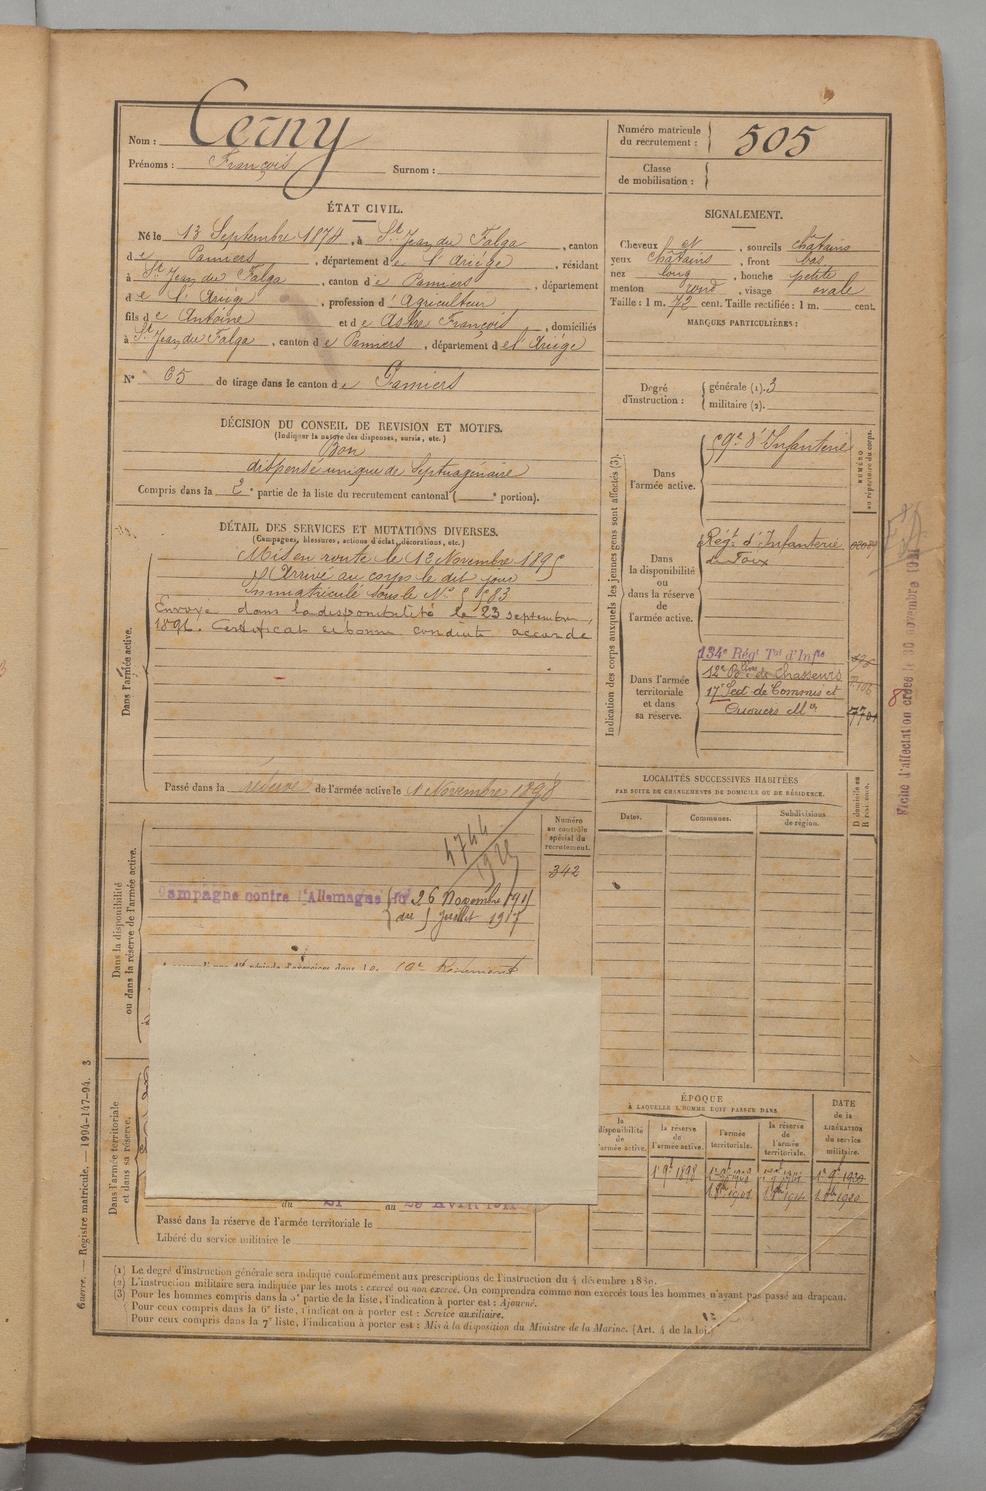 Nom : Cerny
Prénoms : François Surnom :
Numéro matricule
du recrutement : 505
Classe
de mobilisation :
ÉTAT CIVIL.
Né le 13 Septembre 1874, à St Jean du Falga, canton
de Pamiers, département de l'Ariège, résidant
à St Jean du Falga, canton de Pamiers, département
de l'Ariège, profession d'Agriculteur
fils de Antoine et de Astre François, domiciliés
à St Jean du Falga, canton de Pamiers, département de l'Ariège
N° 65 de tirage dans le canton de Pamiers
SIGNALEMENT.
Cheveux et, sourcils châtains
yeux châtains, front bas
nez long, bouche petite
menton rond, visage ovale
Taille : 1 m. 72 cent. Taille rectifiée : 1 m. cent.
MARQUES PARTICULIÈRES :
Degré
d'instruction :
générale (1). 3
militaire (2).
DÉCISION DU CONSEIL DE REVISION ET MOTIFS.
(Indiquer la nature des dispenses, sursis, etc.)
Bon
dispensé unique de Septuagénaire
Compris dans la 2e partie de la liste du recrutement cantonal ( e portion).
DÉTAIL DES SERVICES ET MUTATIONS DIVERSES.
(Campagnes, blessures, actions d'éclat, décorations, etc.)
Dans l'armée active.
Mis en route le 12 Novembre 1895
Arrivé au corps le dit jour
Immatriculé sous le N°
Envoyé dans la disponibilité le 23 septembre
1896. Certificat de bonne conduite accordé
Passé dans la réserve de l'armée active le 1 Novembre 1898
Indication des corps auxquels les jeunes gens sont affectés (3).
NUMÉRO
au répertoire du corps.
Dans
l'armée active.
59e d'Infanterie
Dans
la disponibilité
ou
dans la réserve
de
l'armée active.
Régt d'Infanterie
de Foix
Dans l'armée
territoriale
et dans
sa réserve.
134e Régt Tal d'Infie
12e Bon de Chasseurs
17e Sect de Commis et
Ouvriers
Fiche d'affectation créée le 30 novembre
LOCALITÉS SUCCESSIVES HABITÉES
PAR SUITE DE CHANGEMENTS DE DOMICILE OU DE RÉSIDENCE.
Dates.
Communes.
Subdivisions
de région.
D domicile ou
R résidence.
Dans la disponibilité
ou dans la réserve de l'armée active.
Numéro
au contrôle
spécial du
recrutement.
342
4744
Campagne contre l'Allemagne du 26 Novembre 1915
au 5 Juillet 1917
Dans l'armée territoriale
et dans sa réserve.
du 21 au
Passé dans la réserve de l'armée territoriale le
Libéré du service militaire le
ÉPOQUE
À LAQUELLE L'HOMME DOIT PASSER DANS
la
disponibilité
de
l'armée active.
la réserve
de
l'armée active.
l'armée
territoriale.
la réserve
de
l'armée
territoriale.
DATE
de la
LIBÉRATION
du service
militaire.
1er 9bre 1898
Guerre. — Registre matricule. — 1994-147-94. 3
(1) Le degré d'instruction générale sera indiqué conformément aux prescriptions de l'instruction du 4 décembre 1880.
(2) L'instruction militaire sera indiquée par les mots : exercé ou non exercé. On comprendra comme non exercés tous les hommes n'ayant pas passé au drapeau.
(3) Pour les hommes compris dans la 5e partie de la liste, l'indication à porter est : Ajourné.
Pour ceux compris dans la 6e liste, l'indication à porter est : Service auxiliaire.
Pour ceux compris dans la 7e liste, l'indication à porter est : Mis à la disposition du Ministre de la Marine. (Art. 4 de la loi.)